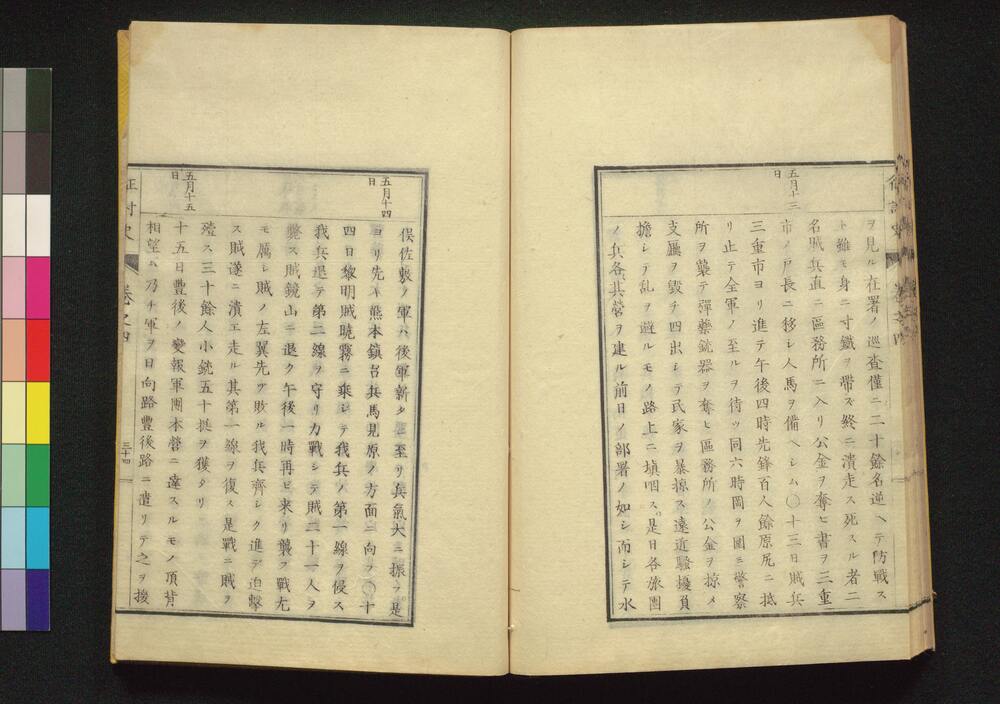 五月十三
日
ヲ見ル在署ノ巡査僅ニ二十餘名逆ヘテ防戰ス
ト雖モ身ニ寸鐵ヲ帶ズ終ニ潰走ス死スル者二
名賊兵直ニ區務所ニ入リ公金ヲ奪ヒ書ヲ三重
市ノ戸長ニ移シ人馬ヲ備ヘシム〇十三日賊兵
三重市ヨリ進テ午後四時先鋒百人餘原尻ニ抵
リ止テ全軍ノ至ルヲ待ツ同六時岡ヲ圍ミ警察
所ヲ襲テ彈藥銃器ヲ奪ヒ區務所ノ公金ヲ掠メ
支廳ヲ毀チ四出シテ民家ヲ暴掠ス遠近騷擾負
擔シテ乱ヲ避ルモノ路上ニ塡咽ス是日各旅團
ノ兵各其營ヲ建ル前日ノ部署ノ如シ而シテ水
五月十四
日
五月十五
日
俣佐敷ノ軍ハ後軍新タニ至リ兵氣大ニ振フ是
ヨリ先キ熊本鎭台兵馬見原ノ方面ニ向フ〇十
四日黎明賊曉霧ニ乘シテ我兵ノ第一線ヲ侵ス
我兵退テ第二線ヲ守リ力戰シテ賊二十一人ヲ
斃ス賊鏡山ニ退ク午後一時再ヒ來リ襲フ戰尤
モ厲シ賊ノ左翼先ツ敗ル我兵齊シク進テ迫擊
ス賊遂ニ潰エ走ル其第一線ヲ復ス是戰ニ賊ヲ
殪ス三十餘人小銃五十挺ヲ獲タリ
十五日豐後ノ變報軍團本營ニ達スルモノ頂背
相望ム乃チ軍ヲ日向路豐後路ニ遣リテ之ヲ援
征討史
卷之四
三十四